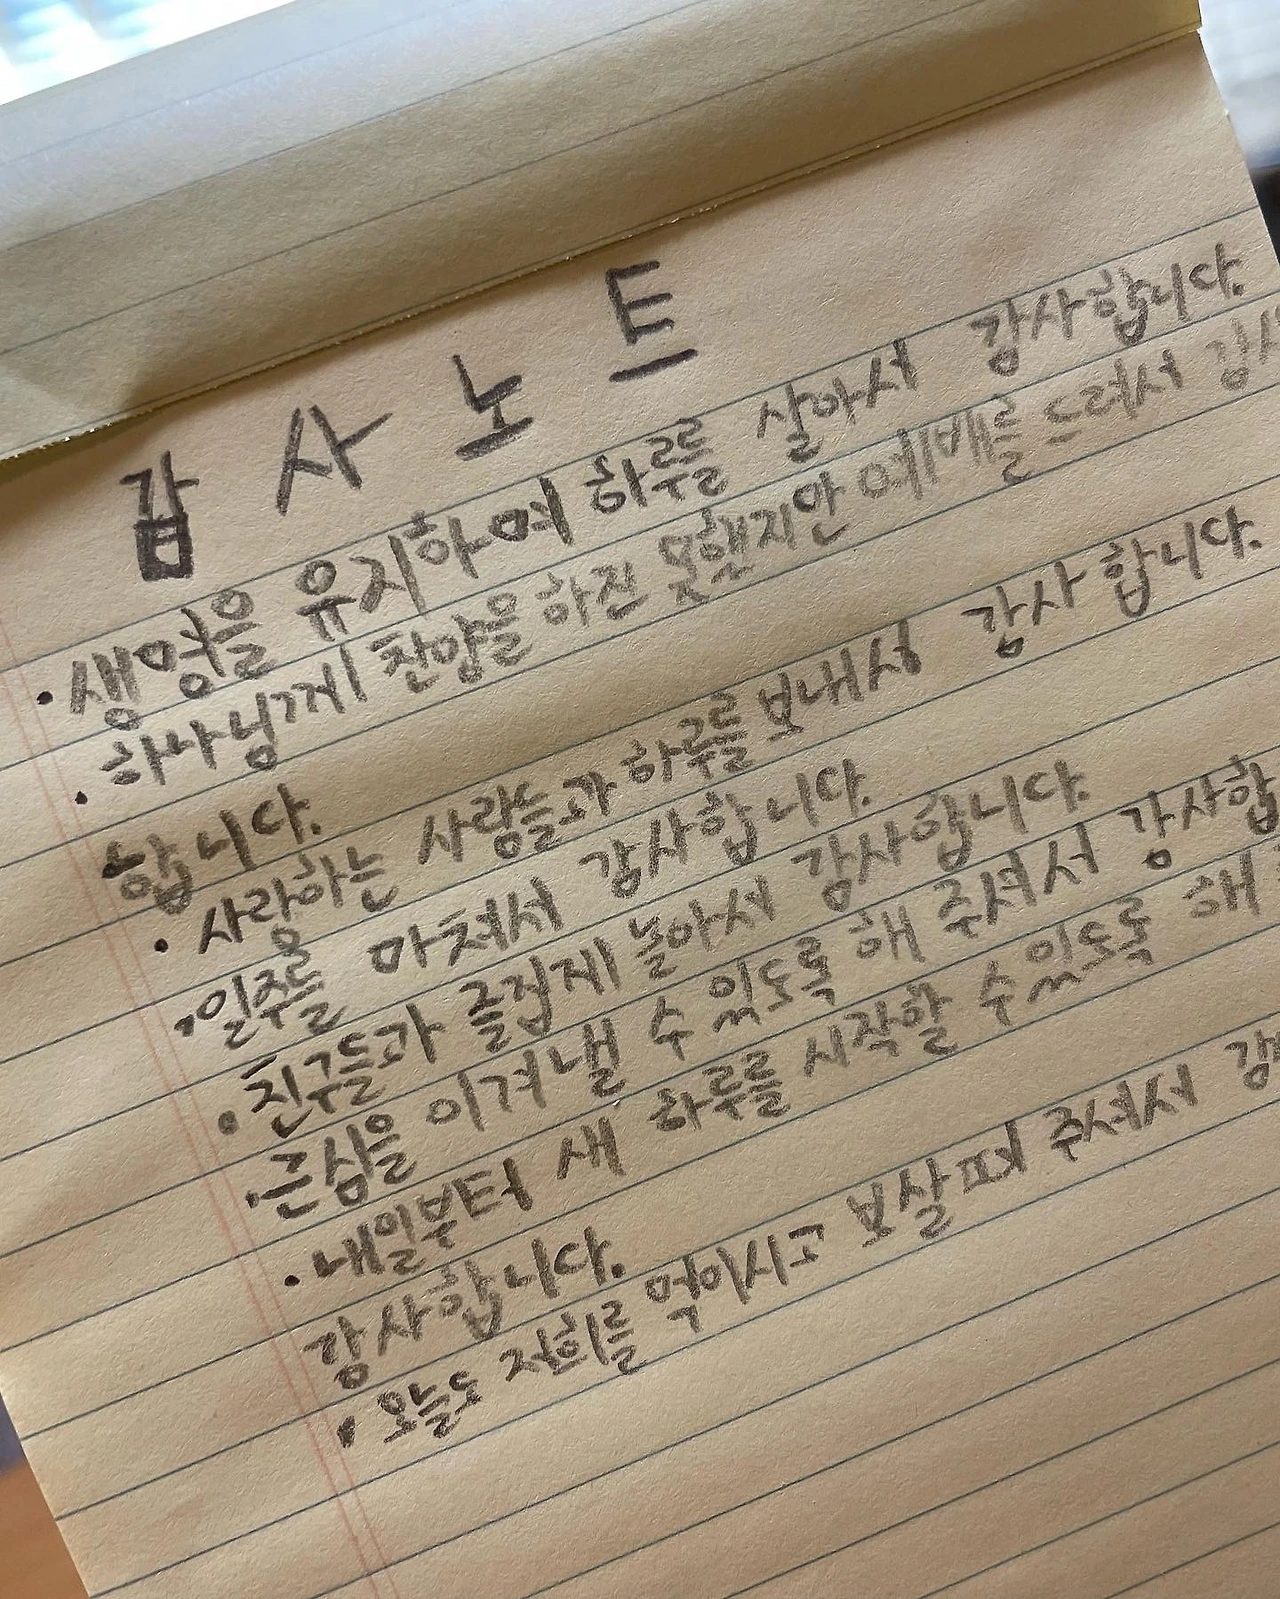 감 사 노 트
· 생명을 유지하여 하루를 살아서 감사합니다.
· 하나님께 찬양을 하진 못했지만 예배를 드려서 감사
합니다.
· 사랑하는 사람들과 하루를 보내서 감사합니다.
· 일주를 마쳐서 감사합니다.
· 친구들과 즐겁게 놀아서 감사합니다.
· 근심을 이겨낼 수 있도록 해 주셔서 감사합
· 내일부터 새 하루를 시작할 수 있도록 해
감사합니다.
· 오늘도 저희를 먹이시고 보살펴 주셔서